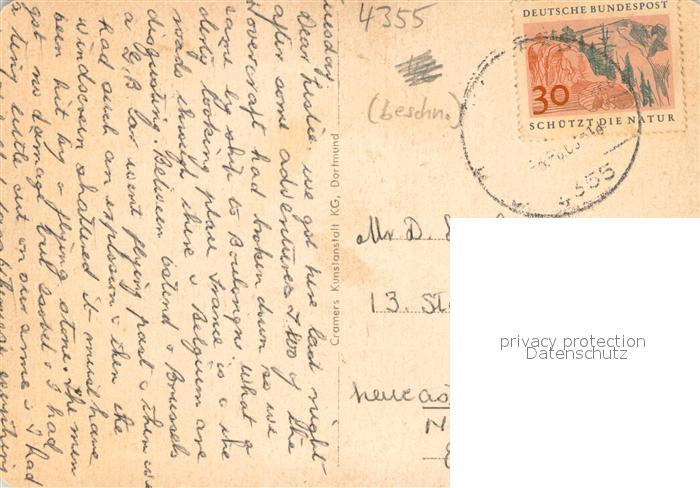 Tuesday
Dear Leslie, we got here last night
after some adventures. 1400 of the
Hovercraft had broken down so we
came by ship to Boulogne. what a
dirty looking place France is & the
roads through there & Belgium are
disgusting. Between Ostend & Brussels
a G.B. car went flying past & then we
had such an explosion & then the
windscreen shattered it must have
been hit by a flying stone. The men
got no damage but Isobel & I had
a tiny little cut on our arms & I had
4355
(beschn.)
DEUTSCHE BUNDESPOST
30
SCHÜTZT DIE NATUR
4355
Cramers Kunstanstalt KG, Dortmund
Mr D.
13. St
Newcas
N
privacy protection
Datenschutz